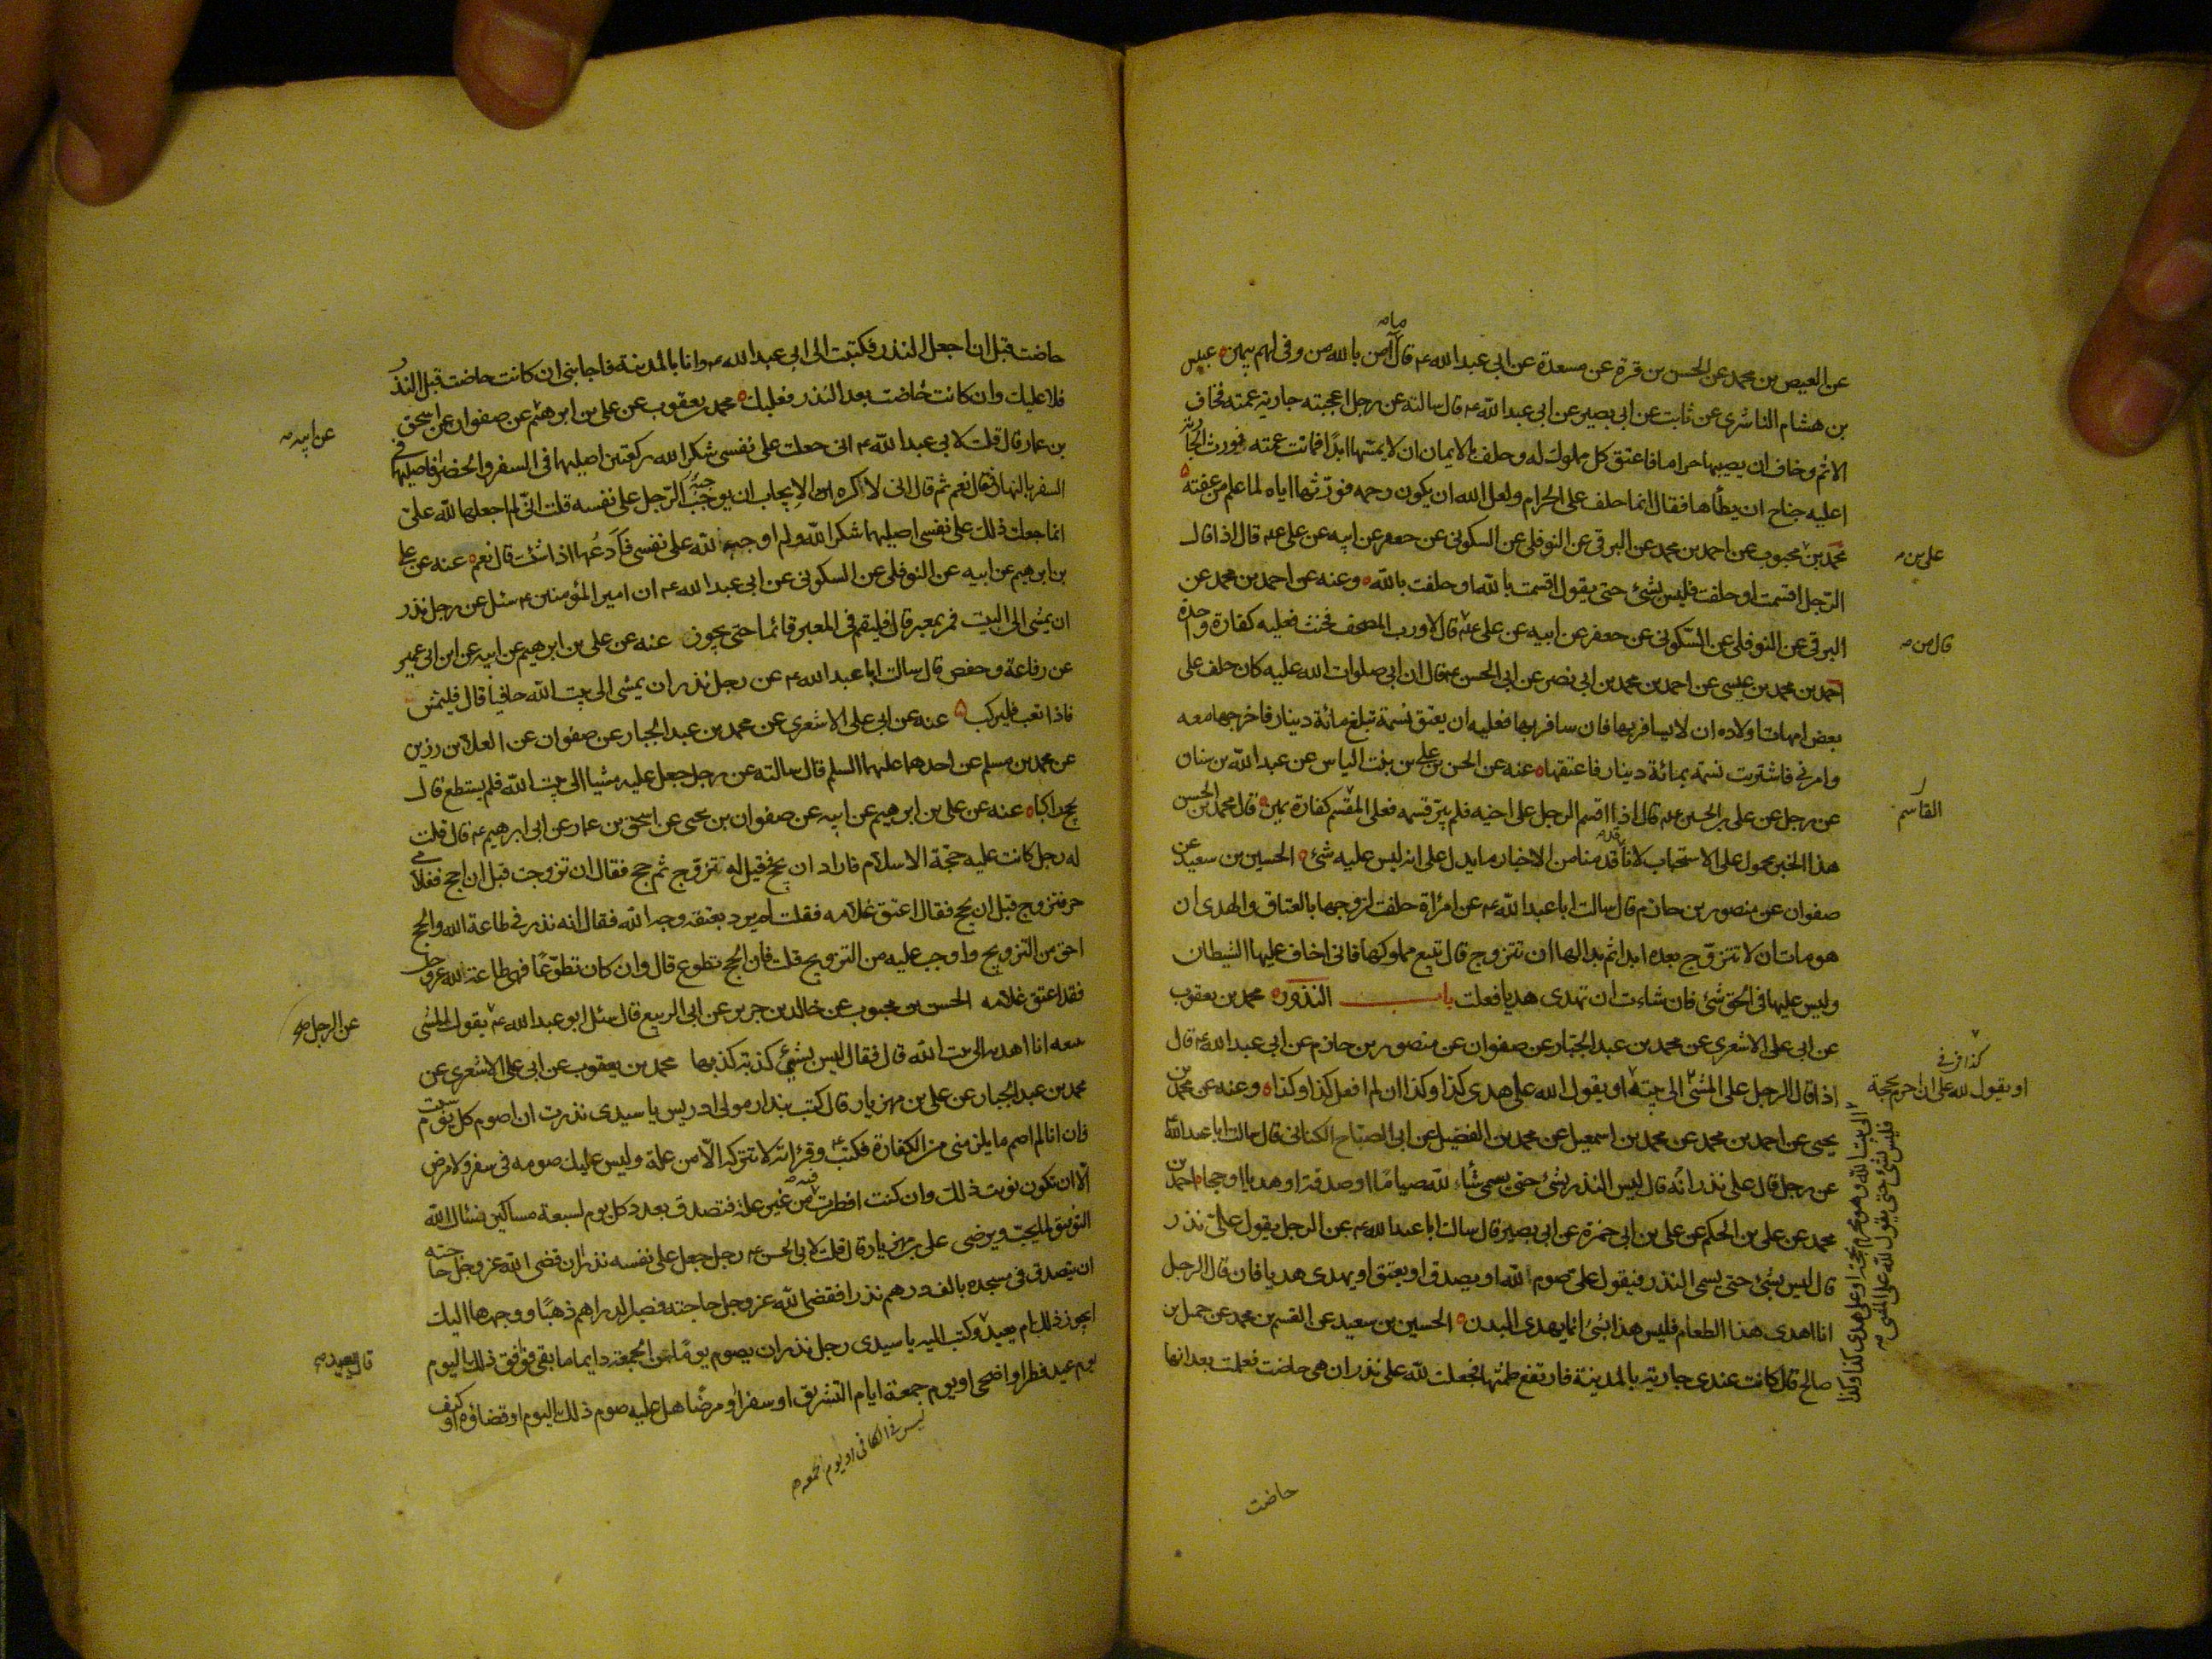 عن العيص بن محمد عن الحسن بن قرة عن مسعدة عن ابى عبد الله ع قال ما آمن بالله من وفى لهم بيمين عبيس
بن هشام الناشرى عن ثابت عن ابى بصير عن ابى عبد الله ع قال سالته عن رجل اعجبته جارية عمته فخاف
الاثم وخاف ان يصيبها حراما فاعتق كل مملوك له وحلف بالايمان ان لا يمسها ابدا فماتت عمته فورث الجارية
اعليه جناح ان يطأها فقال انما حلف على الحرام ولعل الله ان يكون رحمه فورثها اياه لما علم من عفته
محمد بن محبوب عن احمد بن محمد عن البرقى عن النوفلى عن السكونى عن جعفر عن ابيه عن على ع قال اذا قال
الرجل اقسمت او حلفت فليس بشئ حتى يقول اقسمت بالله او حلفت بالله وعنه عن احمد بن محمد عن
البرقى عن النوفلى عن السكونى عن جعفر عن ابيه عن على ع قال لا ورب المصحف فحنث فعليه كفارة واحدة
احمد بن محمد بن عيسى عن احمد بن محمد بن ابى نصر عن ابى الحسن ع قال ان ابى صلوات الله عليه كان حلف على
بعض امهات اولاده ان لا يسافر بها فان سافر بها فعليه ان يعتق نسمة تبلغ مائة دينار فاخرجها معه
وامرنى فاشتريت نسمة بمائة دينار فاعتقها عنه عن الحسن بن على بن بنت الياس عن عبد الله بن سنان
عن رجل عن على بن الحسين ع قال اذا اقسم الرجل على اخيه فلم يبر قسمه فعلى المقسم كفارة يمين قال محمد بن الحسن
هذا الخبر محمول على الاستحباب لانا قد قدمنا من الاخبار ما يدل على انه ليس عليه شئ الحسين بن سعيد عن
صفوان عن منصور بن حازم قال سالت ابا عبد الله ع عن امرأة حلفت لزوجها بالعتاق والهدى ان
هو مات ان لا تتزوج بعده ابدا ثم بدا لها ان تتزوج قال تبيع مملوكها فانى اخاف عليها الشيطان
وليس عليها فى الحق شئ فان شاءت ان تهدى هديا فعلت باب النذور محمد بن يعقوب
عن ابى على الاشعرى عن محمد بن عبد الجبار عن صفوان عن منصور بن حازم عن ابى عبد الله ع قال
اذا قال الرجل على المشى الى بيته او يقول الله على هدى كذا وكذا ان لم افعل كذا وكذا وعنه عن محمد بن
يحيى عن احمد بن محمد عن محمد بن اسمعيل عن محمد بن الفضيل عن ابى الصباح الكنانى قال سالت ابا عبد الله ع
عن رجل قال على نذر انه قال ليس النذر بشئ حتى يسمى شئا لله صياما او صدقة او هديا او حجا احمد بن
محمد عن على بن الحكم عن على بن ابى حمزة عن ابى بصير قال سالت ابا عبد الله ع عن الرجل يقول على نذر
قال ليس بشئ حتى يسمى النذر فيقول على صوم الله او يصدق او يعتق او يهدى هديا فان قال الرجل
انا اهدى هذا الطعام فليس هذا بشئ انما يهدى البدن الحسين بن سعيد عن القسم بن محمد عن جميل بن
صالح قال كانت عندى جارية بالمدينة فارتفع طمثها فجعلت لله على نذر ان هى حاضت فعلمت بعد انها
على بن
قال من
القاسم
كذا فى
او يقول لله على ان احرم بحجة
الى بيت الله وهو محرم بحجة او على هدى كذا وكذا
فليس بشئ حتى يقول لله على المشى
حاضت
حاضت قبل ان اجعل النذر فكتبت الى ابى عبد الله ع وانا بالمدينة فاجابنى ان كانت حاضت قبل النذر
فلا عليك وان كانت حاضت بعد النذر فعليك محمد بن يعقوب عن على بن ابرهيم عن صفوان عن اسحق
بن عمار قال قلت لابى عبد الله ع انى جعلت على نفسى شكرا لله ركعتين اصليهما فى السفر والحضر فاصليهما فى
السفر بالنهار فقال نعم ثم قال انى لاكره الايجاب ان يوجب الرجل على نفسه قلت انى لم اجعلهما لله على
انما جعلت ذلك على نفسى اصليهما شكرا لله ولم اوجبه لله على نفسى فادعهما اذا شئت قال نعم عنه عن على
بن ابرهيم عن ابيه عن النوفلى عن السكونى عن ابى عبد الله ع ان امير المؤمنين ع سئل عن رجل نذر
ان يمشى الى البيت فمر بمعبر قال فليقم فى المعبر قائما حتى يجوز عنه عن على بن ابرهيم عن ابيه عن ابن ابى عمير
عن رفاعة وحفص قال سالت ابا عبد الله ع عن رجل نذر ان يمشى الى بيت الله حافيا قال فليمش
فاذا تعب فليركب عنه عن ابى على الاشعرى عن محمد بن عبد الجبار عن صفوان عن العلا بن رزين
عن محمد بن مسلم عن احدهما عليهما السلم قال سالته عن رجل جعل عليه مشيا الى بيت الله فلم يستطع قال
يحج راكبا عنه عن على بن ابرهيم عن ابيه عن صفوان بن يحيى عن اسحق بن عمار عن ابى ابرهيم ع قال قلت
له رجل كانت عليه حجة الاسلام فاراد ان يحج فقيل له تتزوج ثم حج فقال ان تزوجت قبل ان احج فغلامى
حر فتزوج قبل ان يحج فقال اعتق غلامه فقلت لم يرد بعتقه وجه الله فقال انه نذر فى طاعة الله والحج
احق من التزويج واوجب عليه من التزويج قلت فان الحج تطوع قال وان كان تطوعا فهى طاعة الله عز وجل
فقد اعتق غلامه الحسن بن محبوب عن خالد بن جرير عن ابى الربيع قال سئل ابو عبد الله ع يقول للشئ
معه انا اهديه الى بيت الله قال فقال ليس بشئ كذبة كذبها محمد بن يعقوب عن ابى على الاشعرى عن
محمد بن عبد الجبار عن على بن مهزيار قال كتب بندار مولى ادريس يا سيدى نذرت ان اصوم كل يوم سبت
فان انا لم اصم ما يلزمنى من الكفارة فكتب ع وقرأته لا تتركه الا من علة وليس عليك صومه فى سفر ولا مرض
الا ان تكون نويت ذلك وان كنت افطرت فيه من غير علة فتصدق بعدد كل يوم لسبعة مساكين نسئال الله
التوفيق لما يحب ويرضى على بن مهزيار قال قلت لابى الحسن ع رجل جعل على نفسه نذرا ان قضى الله عز وجل حاجته
ان يتصدق فى مسجده بالف درهم نذرا فقضى الله عز وجل حاجته فصير الدراهم ذهبا ووجهها اليك
ايجوز ذلك ام يعيد وكتب اليه يا سيدى رجل نذر ان يصوم يوما من الجمعة دايما ما بقى فوافق ذلك اليوم
يوم عيد فطر او اضحى او يوم جمعة او ايام التشريق او سفر او مرض هل عليه صوم ذلك اليوم او قضاؤه او كيف
عن ابيه
عن الرجل
قال يعيد
ليس فى الكافى او يوم الجمعة